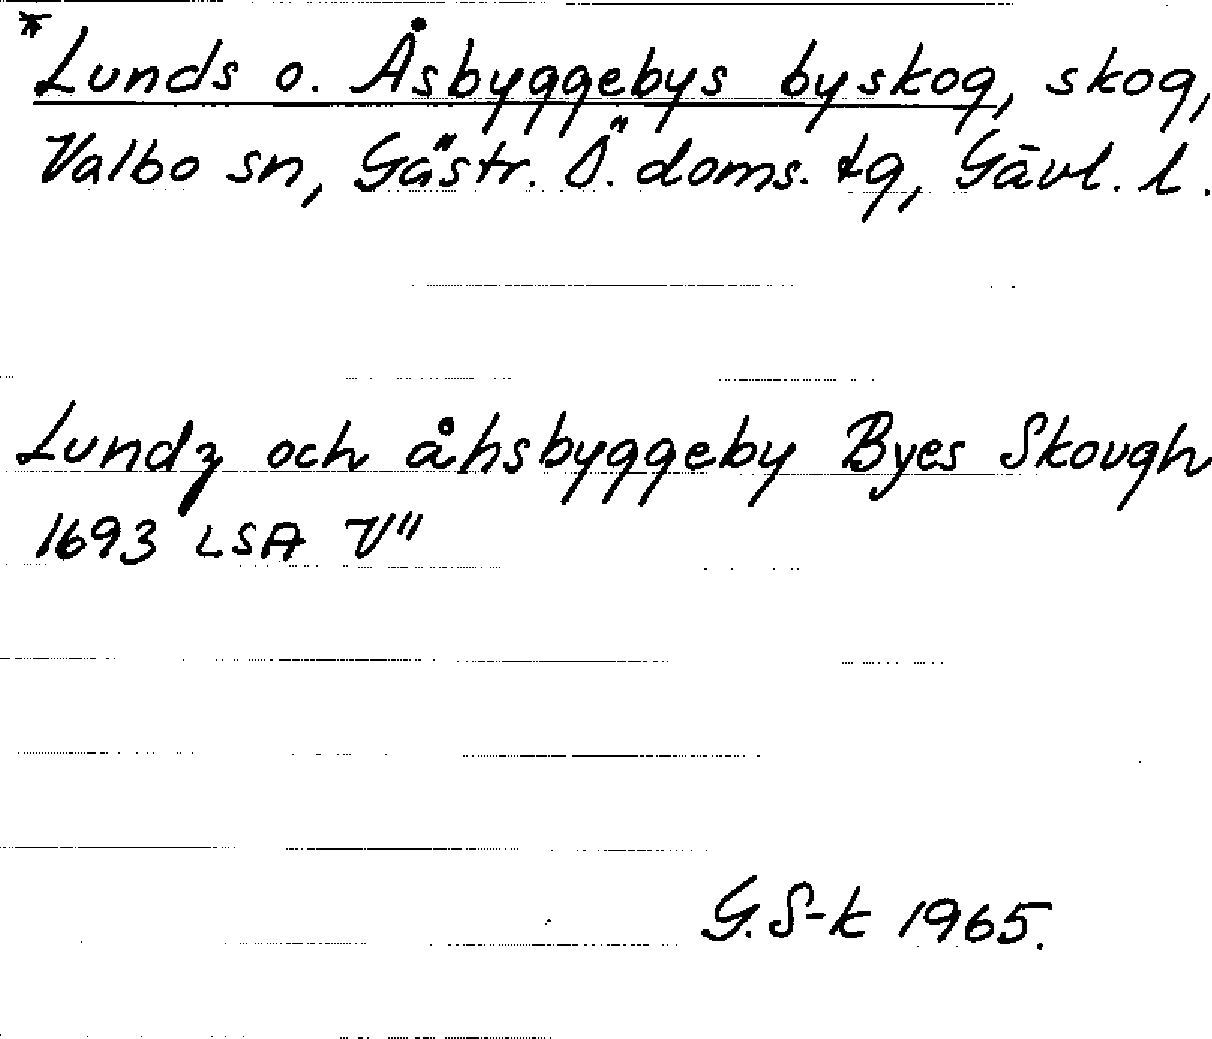 *Lunds o. Åsbyggebys byskog, skog,
Valbo sn, Gästr. Ö. doms. tg, Gävl. l.
Lundz och åhsbyggeby Byes Skough
1693 LSA V"
G. S-k 1965.